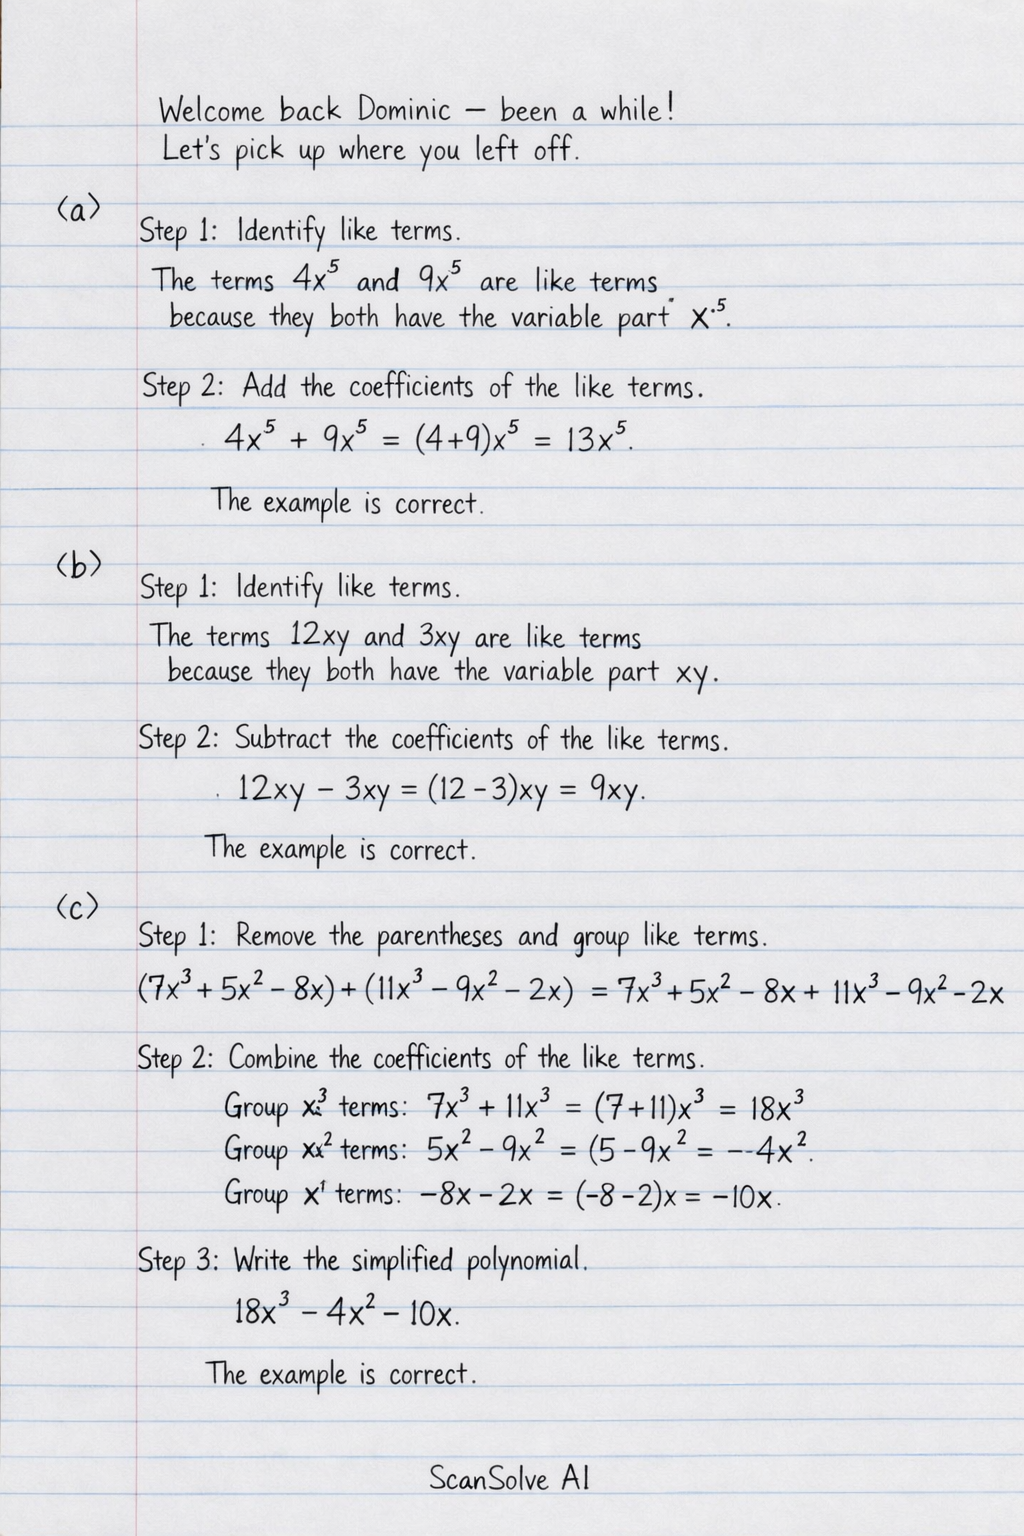 Welcome back Dominic – been a while!
Let's pick up where you left off.
(a)
Step 1: Identify like terms.
The terms 4x⁵ and 9x⁵ are like terms
because they both have the variable part x⁵.
Step 2: Add the coefficients of the like terms.
4x⁵ + 9x⁵ = (4+9)x⁵ = 13x⁵.
The example is correct.
(b)
Step 1: Identify like terms.
The terms 12xy and 3xy are like terms
because they both have the variable part xy.
Step 2: Subtract the coefficients of the like terms.
12xy – 3xy = (12 – 3)xy = 9xy.
The example is correct.
(c)
Step 1: Remove the parentheses and group like terms.
(7x³ + 5x² – 8x) + (11x³ – 9x² – 2x) = 7x³ + 5x² – 8x + 11x³ – 9x² – 2x
Step 2: Combine the coefficients of the like terms.
Group x³ terms: 7x³ + 11x³ = (7+11)x³ = 18x³
Group xx² terms: 5x² – 9x² = (5 – 9x² = –-4x².
Group x¹ terms: –8x – 2x = (-8 – 2)x = –10x.
Step 3: Write the simplified polynomial.
18x³ – 4x² – 10x.
The example is correct.
ScanSolve AI